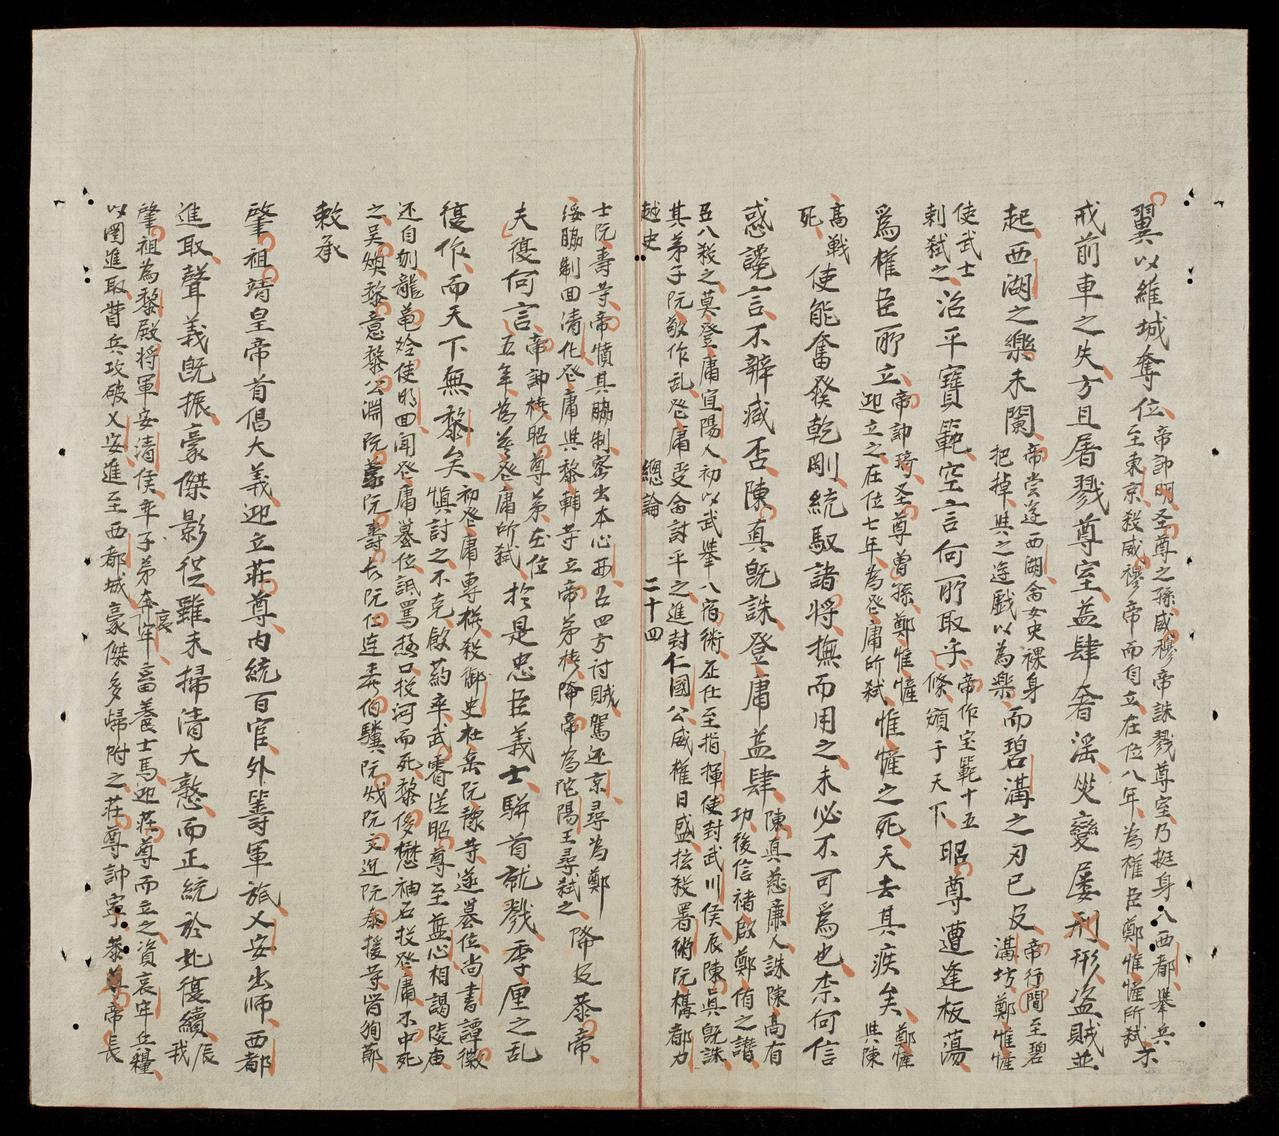 翼以維城奪位帝諱明圣尊之孫威穆帝誅戮尊室乃挺身入西都舉兵
至東京殺威穆帝而自立在位八年為權臣鄭惟㦃所弑不
戒前車之失方且屠戮尊室益肆奢淫災變屡形盗賊並
起西湖之樂未闌帝嘗遊西湖令女史裸身
把掉與之遊戲以為樂而碧溝之刃已及帝行間至碧
溝坊鄭惟㦃
使武士
刺弑之治平寶範空言何所取乎帝作宝範十五
條頒于天下昭尊遭逢板蕩
為權臣所立帝諱琦圣尊曽孫鄭惟㦃
迎立之在位七年為登庸所弑惟㦃之死天去其疾矣鄭㦃
與陳
高戰
死使能奮發乾剛統馭諸将撫而用之未必不可為也柰何信
惑讒言不辨臧否陳真既誅登庸益肆陳真慈廉人誅陳高有
功後信禇啟鄭侑之譖
召入殺之莫登庸宜陽人初以武舉入宿衛並仕至指揮使封武川侯辰陳真既誅
其弟子阮敬作乱登庸受命討平之進封仁國公威權日盛擅殺署衛阮構都力
越史 總論 二十四
士阮壽等帝憤其脇制密出本心西召四方討賊駕还京尋為鄭
綏脇制囬清化登庸與黎輔等立帝弟椿降帝為陀陽王尋弑之降及恭帝
夫復何言帝諱椿昭尊弟在位
五年為莫登庸所弑於是忠臣義士駢首就戮季厘之乱
復作而天下無黎矣初登庸專權殺御史杜岳阮豫等遂簒位尚書譚徽
慎討之不克飲药卒武睿従昭尊至藍心相謁陵庙
还自刎龍竜姶使明囬聞登庸簒位訊罵極口投河而死黎俊懋袖石投登庸不中死
之吴煥黎意黎公淵阮阮壽长阮仁连春伯驥阮戌阮文近阮泰援等皆殉节
敕承
肇祖靖皇帝首倡大義迎立莊尊内統百官外籌軍旅乂安出师西都
進取聲義既振豪傑影従雖未掃清大憝而正統於此復續辰
我
肇祖為黎殿将軍安清侯率子弟奔哀牢畜養士馬迎莊尊而立之資哀牢兵糧
以圖進取督兵攻破乂安進至西都城豪傑多歸附之莊尊諱寧恭尊帝長